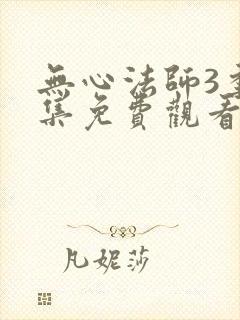 無心法師3全
集免費觀看
凡妮莎